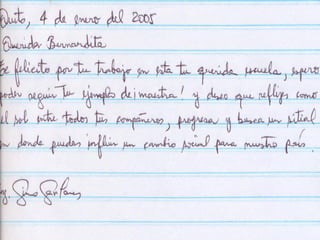 Quito, 4 de enero del 2005
Querida Bernardita
Te felicito por tu trabajo en esta tu querida escuela, espero
poder seguir tu ejemplo de ¡maestra! y deseo que reflejes como
el sol entre todos tus compañeros, progresa y busca un sitial
en donde puedas influir un cambio social para nuestro país.